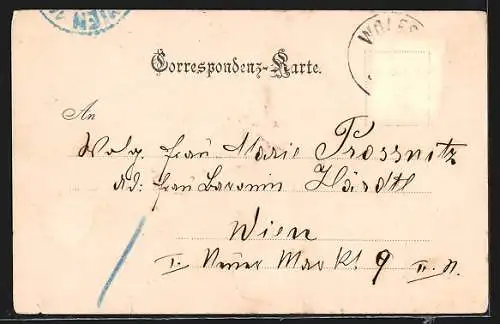 WIEN
WOLFS
Correspondenz-Karte.
An
Wolg. Frau Marie Prossnitz
Ad: Frau Baronin Härdtl
Wien
I. Neuer Markt 9 II. N.